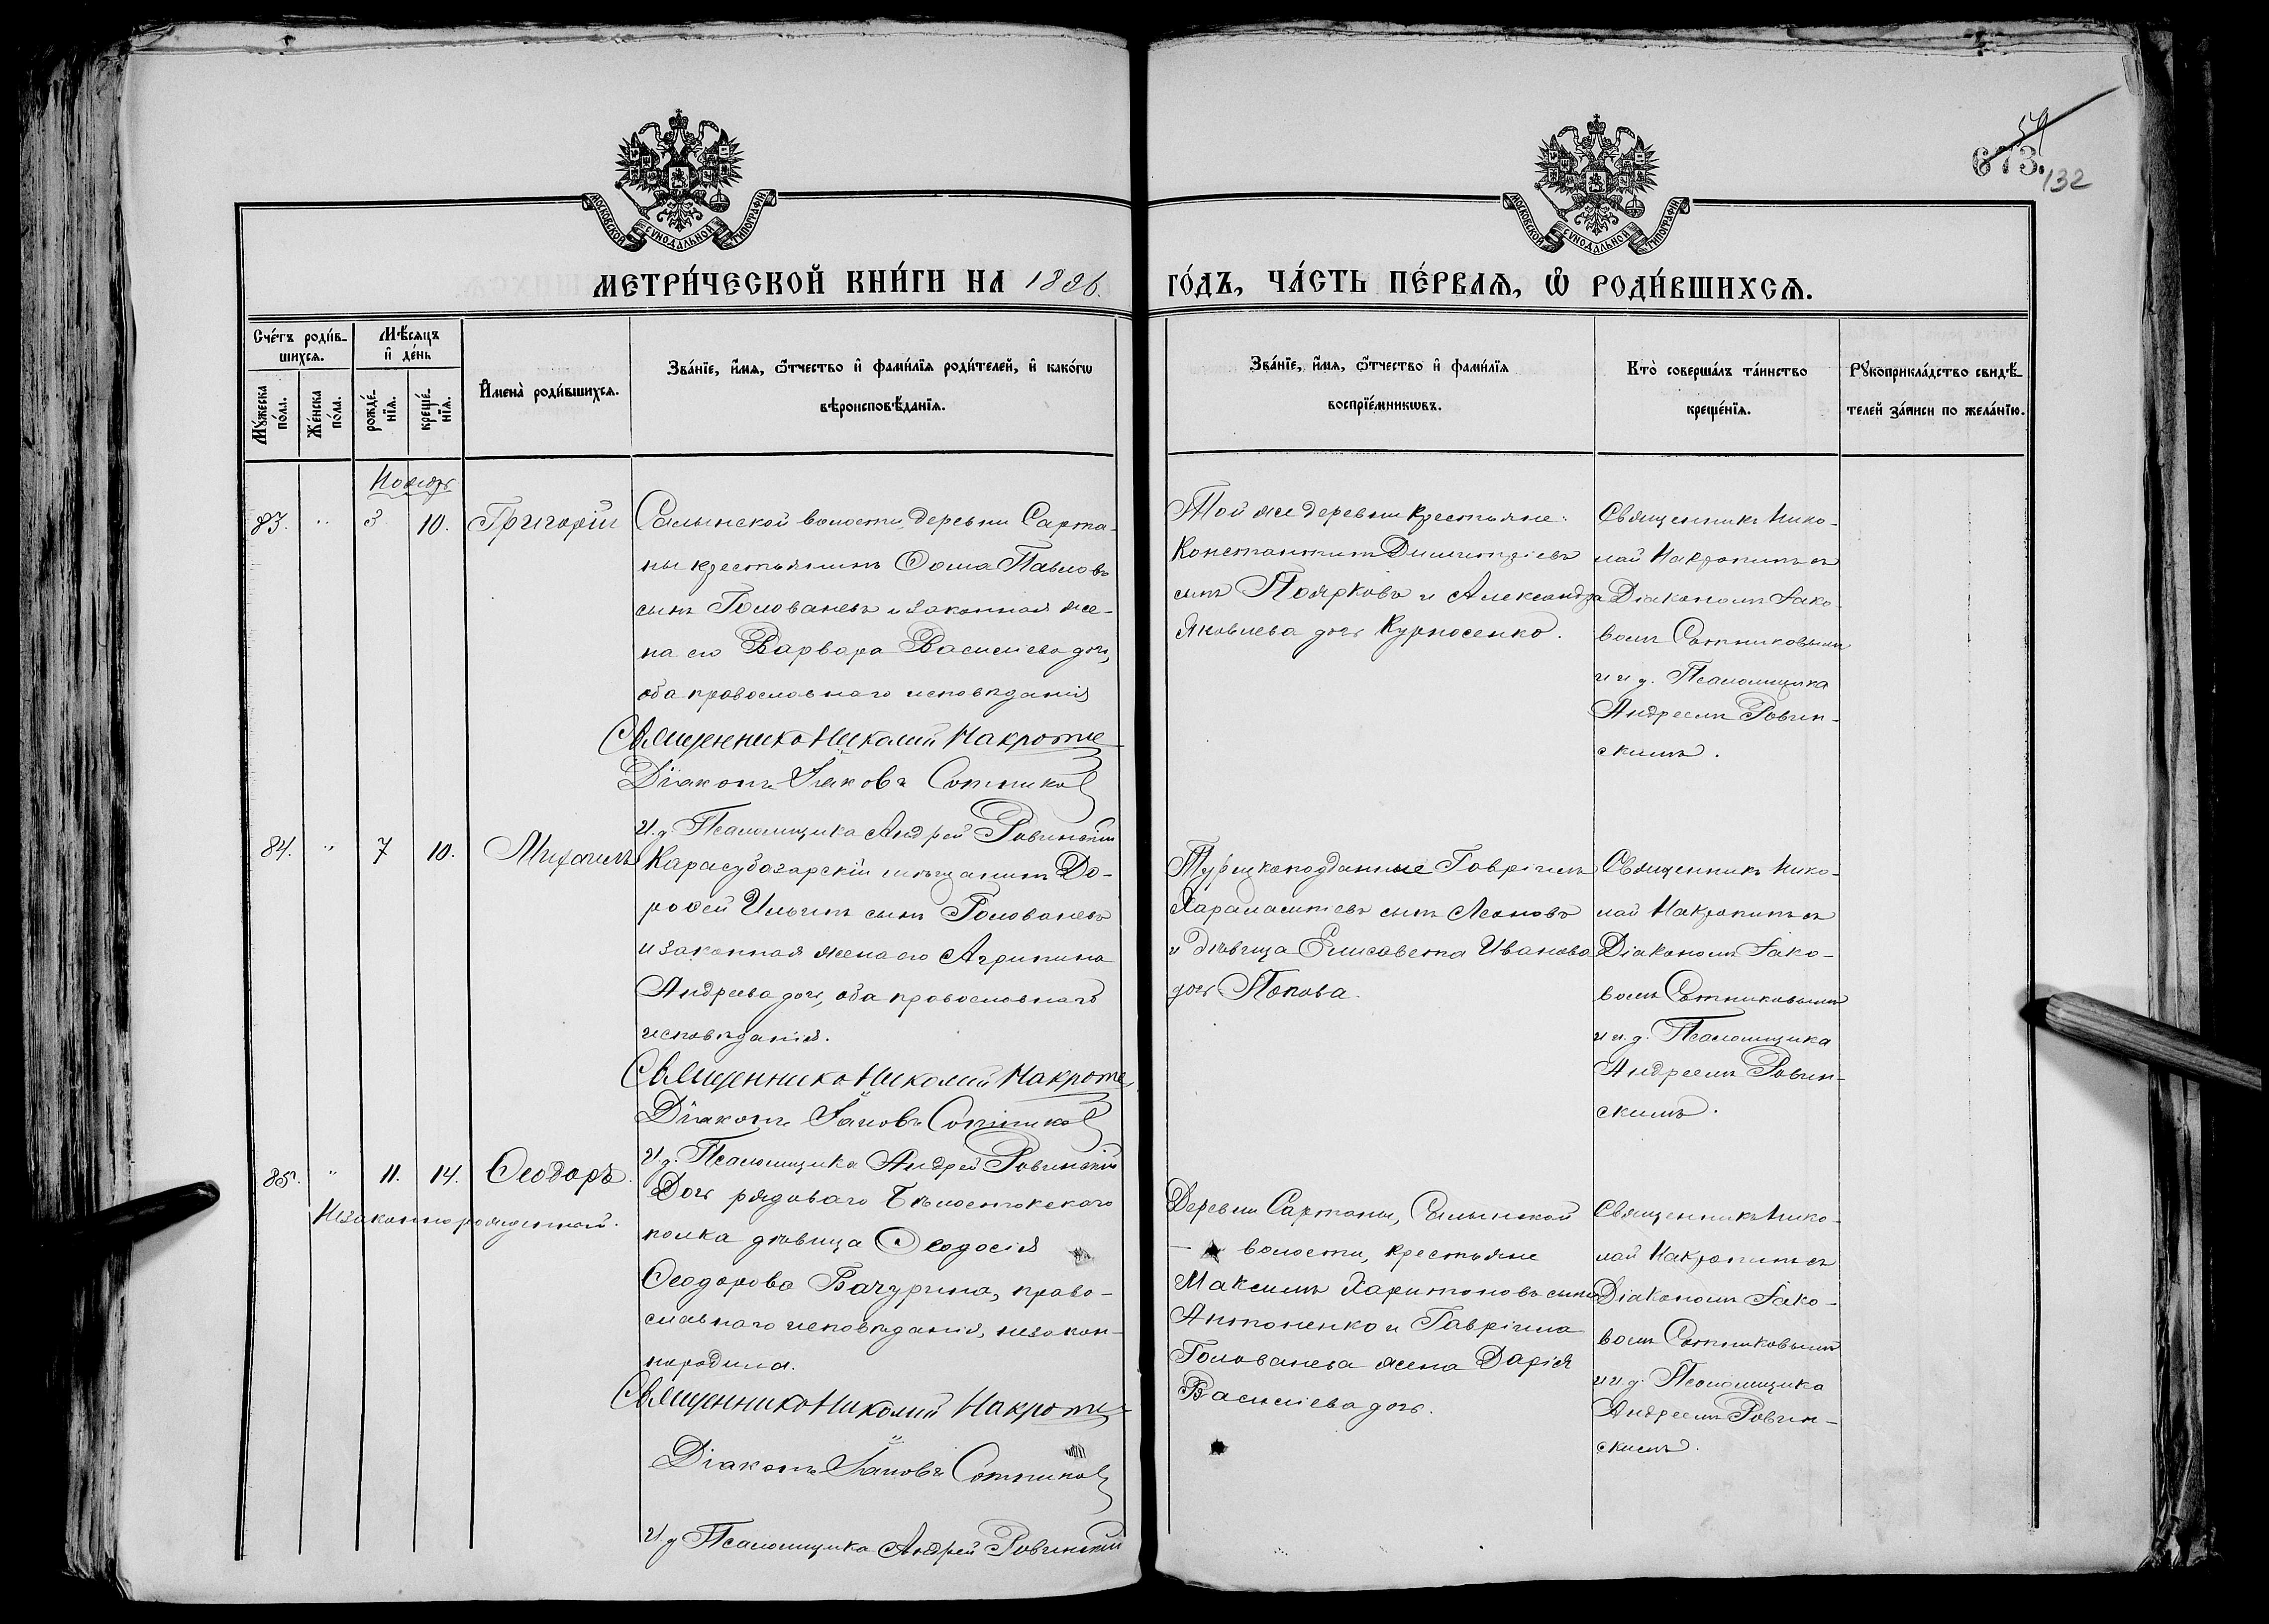 54
673.
132
МОСКОВСКОЙ СУНОДАЛЬНОЙ ТИПОГРАФІИ
МОСКОВСКОЙ СУНОДАЛЬНОЙ ТИПОГРАФІИ
МЕТРИ́ЧЕСКОЙ КНИ́ГИ НА 1886.
ГО́ДЪ, ЧА́СТЬ ПЕ́РВАѦ, Ѡ҆ РОДИ́ВШИХСѦ.
Сче́тъ роди́в-
шихсѧ.
Мѣ́сѧцъ
и҆ де́нь
Мꙋ́жеска
по́ла.
Же́нска
по́ла.
рожде́-
нїѧ.
креще́-
нїѧ.
И҆мена̀ роди́вшихсѧ.
Зва́нїе, и҆́мѧ, ѻ҆́тчество и҆ фами́лїѧ роди́телей, и҆ како́гѡ
вѣроисповѣ́данїѧ.
Зва́нїе, и҆́мѧ, ѻ҆́тчество и҆ фами́лїѧ
воспрїе́мникѡвъ.
Кто̀ соверша́лъ та́инство
креще́нїѧ.
Рꙋкоприкла́дство свидѣ́-
телей за́писи по жела́нїю.
Ноябрь
83. " 3 10. Григорій
Салынской волости, деревни Сарта-
ны крестьянинъ Ѳома Павловъ
сынъ Голованевъ и законная же-
на его Варвара Василіева дочь,
оба православнаго исповѣданія
Священникъ Николай Макроти
Діаконъ Іаковъ Сотников
И. д. Псаломщика Андрей Ровинскій
Той же деревни крестьяне:
Константинъ Димитріевъ
сынъ Поярковъ и Александра
Яковлева дочь Курносенко.
Священникъ Нико-
лай Макроти съ
Діакономъ Іако-
вомъ Сотниковымъ
и и. д. Псаломщика
Андреемъ Ровин-
скимъ.
84. " 7 10. Михаилъ
Карасубазарскій мѣщанинъ До-
роѳей Ильинъ сынъ Голованевъ
и законная жена его Агрипина
Андреева дочь, оба православнаго
исповѣданія.
Священникъ Николай Макроти
Діаконъ Іаковъ Сотников
И. д. Псаломщика Андрей Ровинскій
Турецкоподданные Гавріилъ
Харалампіевъ сынъ Леоновъ
и дѣвица Елисавета Иванова
дочь Попова.
Священникъ Нико-
лай Макроти съ
Діакономъ Іако-
вомъ Сотниковымъ
и и. д. Псаломщика
Андреемъ Ровин-
скимъ.
85. " 11. 14. Ѳеодоръ.
Незаконнорожденный.
Дочь рядоваго Бѣлостокскаго
полка дѣвица Ѳеодосія
Ѳеодорова Бачурина, право-
славнаго исповѣданія, незакон-
нородила.
Священникъ Николай Макроти
Діаконъ Іаковъ Сотников
И. д Псаломщика Андрей Ровинскій
Деревни Сартаны, Салынской
волости, крестьяне
Максимъ Харитоновъ сынъ
Антоненко и Гавріила
Голованева жена Дарія
Василіева дочь.
Священникъ Нико-
лай Макроти съ
Діакономъ Іако-
вомъ Сотниковымъ
и и. д. Псаломщика
Андреемъ Ровин-
скимъ.